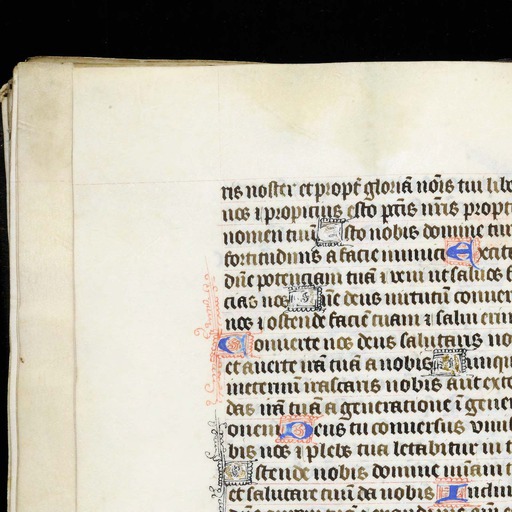 ris noster et propt̄ gloriā nōis tui libe
nos ⁊ propicius esto pctīs nr̄is propt
nomen tuū Esto nobis domine tur
fortitudinis a facie inimici Excita
dn̄e potenciam tuā ⁊ veni ut saluos f
cias nos Dn̄e deus uirtutū conuer
nos ⁊ ostende faciē tuam ⁊ salui erim
Conuerte nos deus salutaris no
et auerte irā tuā a nobis Nunqu
ineternū irascaris nobis aut exte
das irā tuā a generatione ī gener
onem Deus tu conuersus viuif
bis nos ⁊ plebs tua letabitur in t
Ostende nobis domine mīam t
et salutare tuū da nobis Inclin